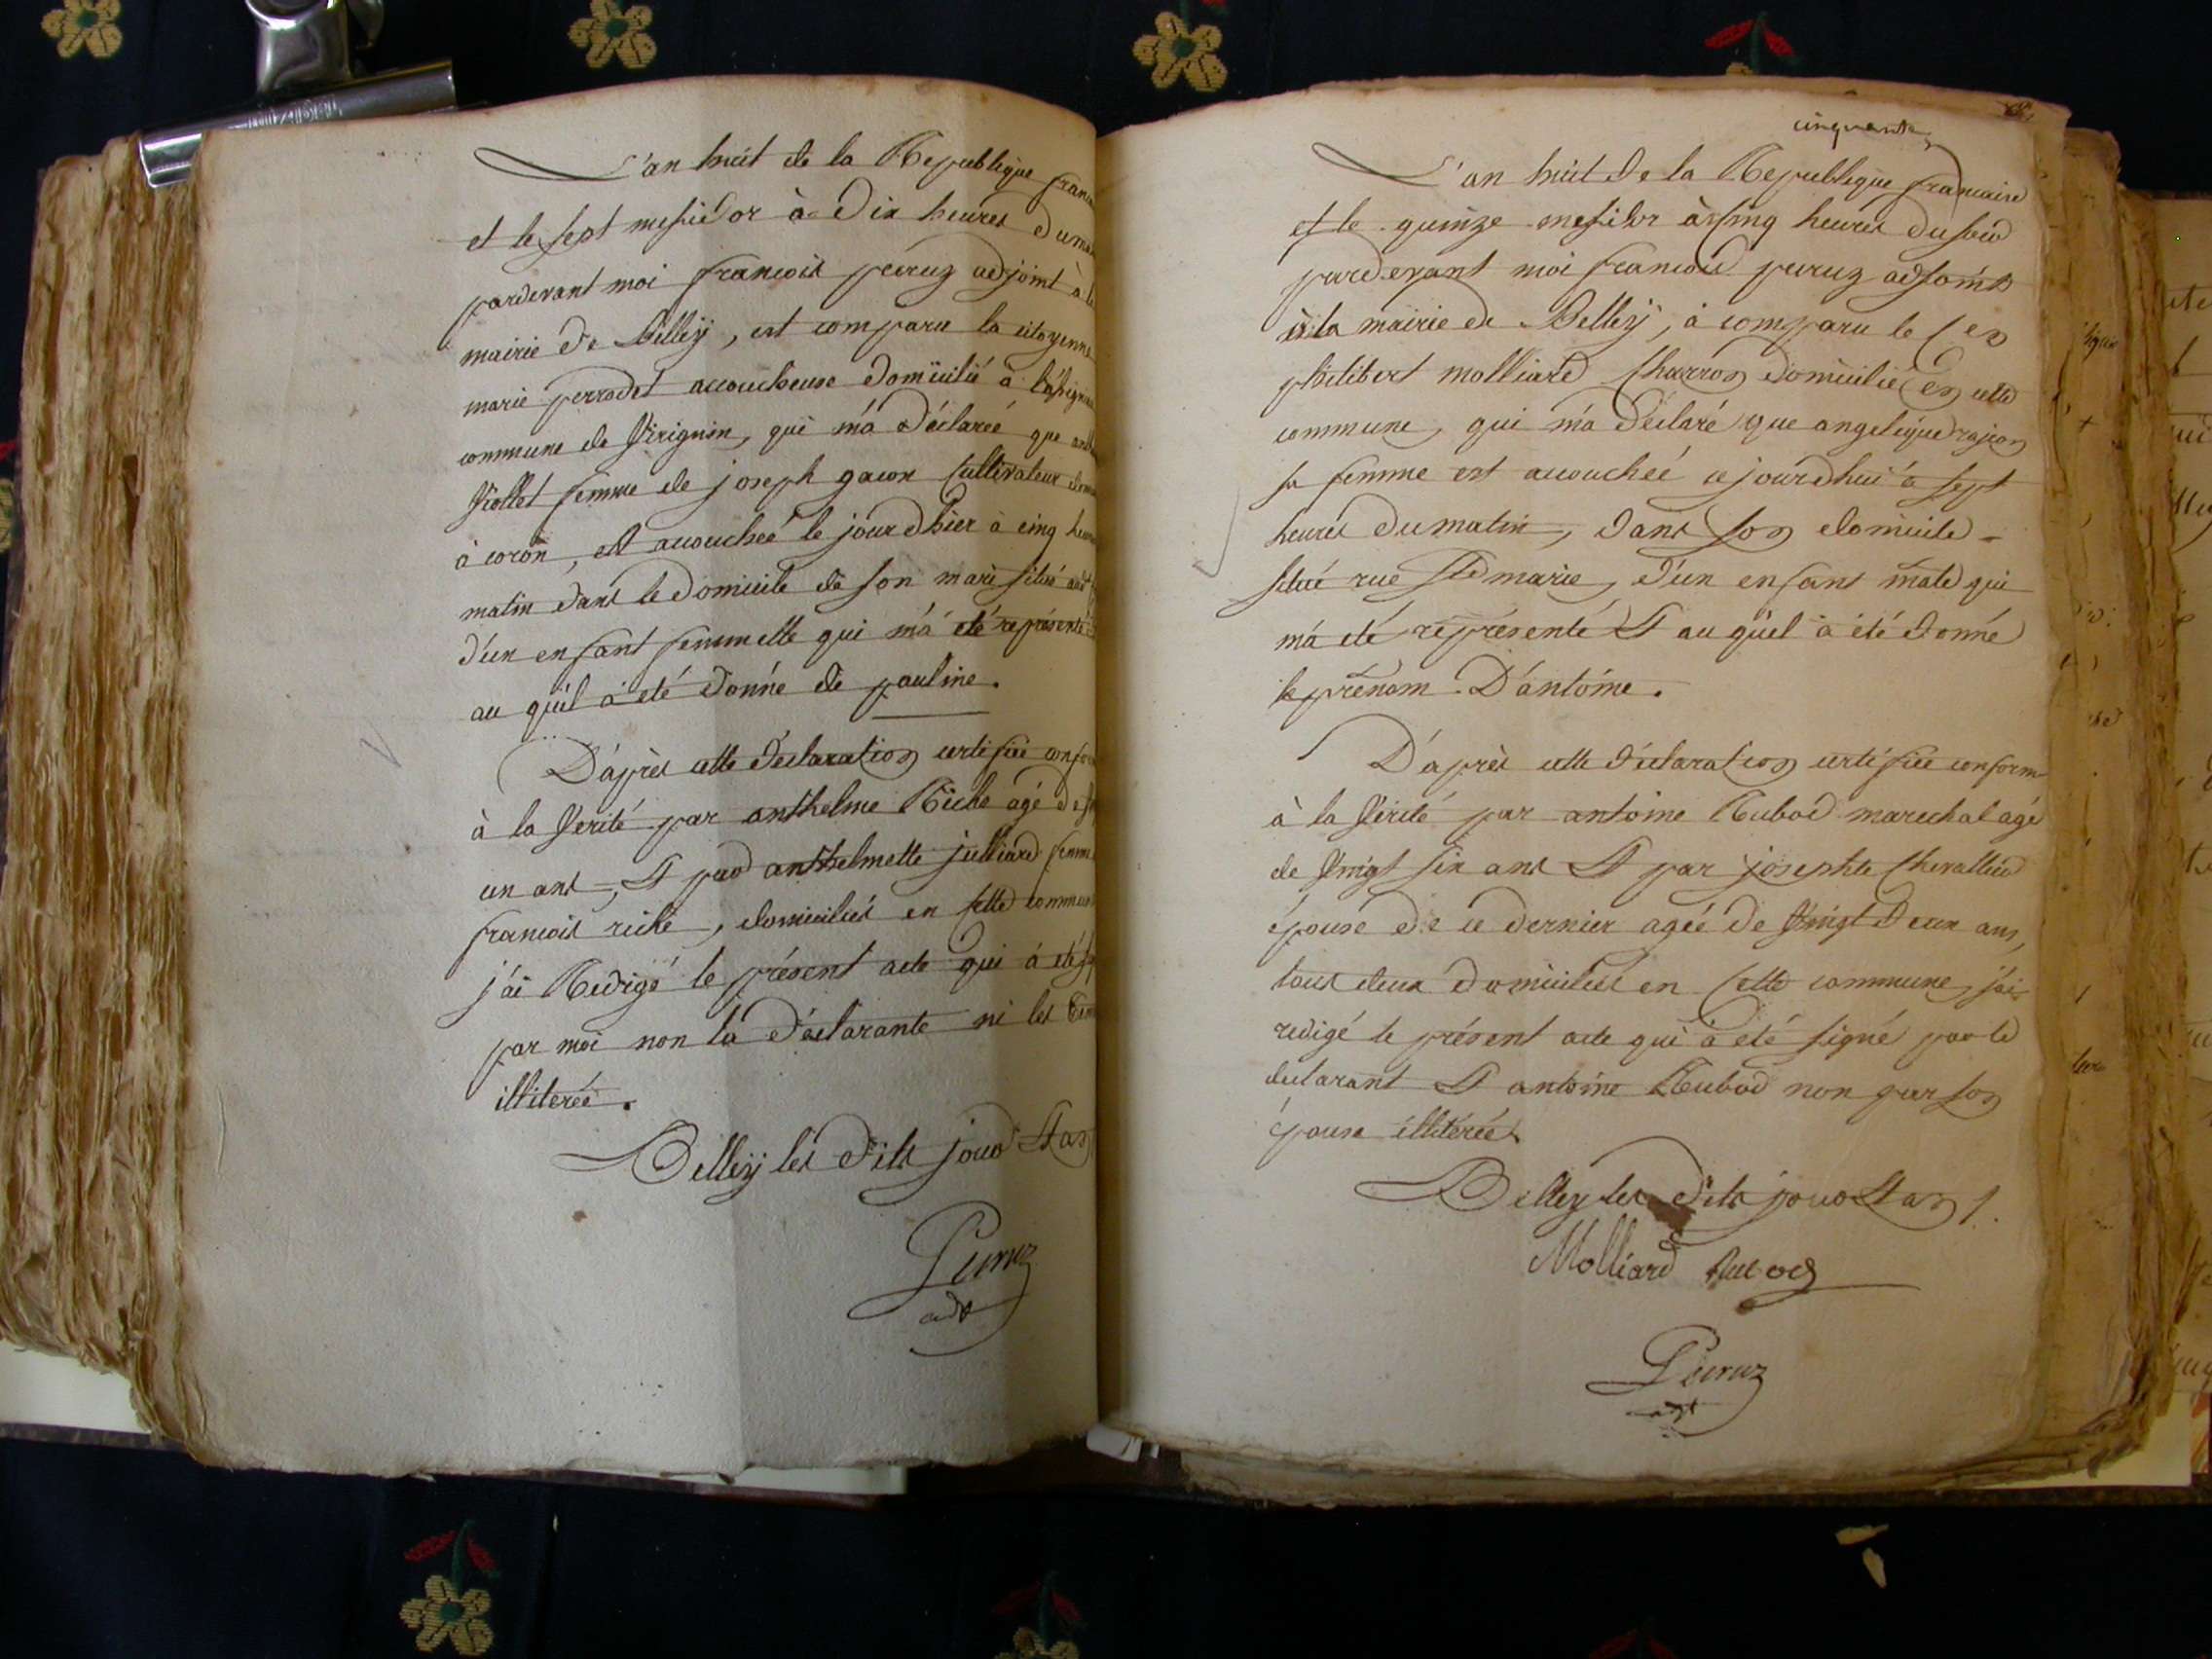 L'an huit de la Republique franc
et le sept messidor à dix heures du ma
pardevant moi francois peuruz adjoint à l
mairie de Belleÿ, est comparu la citoyenne
marie perrodet accoucheuse domiciliée à
commune de Virignin, qui m'a déclaré que
Viollet femme de joseph gacon Cultivateur dem
à coron, est accouchée le jour d'hier à cinq heur
matin dans le domicile de son mari situé aud
d'un enfant femmelle qui m'a été représenté
au quel a été donné de pauline.
D'après cette déclaration certifiée confor
à la Verité par anthelme Riche agé de
un ans, et par anthelmette julliard femme
francois riche, domiciliés en cette commun
j'ai Redigé le présent acte qui a été
par moi non la déclarante ni les tém
illiterés.
Belleÿ les dits jour et an
Peuruz
adt
cinquante
L'an huit de la Republique francaise
et le quinze messidor à cinq heures du soir
pardevant moi francois peuruz adjoint
à la mairie de Belleÿ, a comparu le Cen
philibert molliard Charron domicilié en cette
commune, qui m'a déclaré que angelique rajon
sa femme est accouchée ce jourd'hui à sept
heures du matin, dans son domicile
situé rue Ste marie, d'un enfant male qui
m'a été représenté et au quel a été donné
le prénom D'antoine.
D'après cette déclaration certifiée conforme
à la Vérité par antoine Rubod marechal agé
de Vingt six ans et par josephte Chevallier
épouse de ce dernier agée de Vingt Deux ans,
tous deux domiciliés en Cette commune, j'ai
redigé le présent acte qui a été signé par le
declarant et antoine Rubod non par son
épouse illitérée.
Belley les dits jour et an
Molliard Rubod
Peuruz
adjt